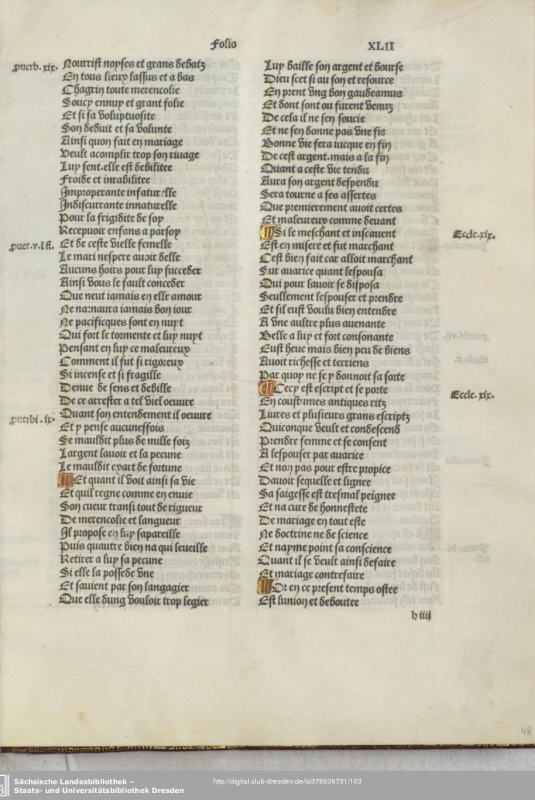 Folio XLII
prouerb. xix.
Nourrist noyses et grans debatz
En tous lieux lassus et a bas
Chagrin toute merencolie
Soucy ennuy et grant folie
Et si sa voluptuosite
Son deduit et sa volunte
Ainsi quon fait en mariage
Veult acomplir trop son riuage
Luy sent.elle est debilitee
Froide et inrabilitee
Improperante infatur elle
Indiscurrante innaturelle
Pour la frigidite de soy
Receuoir enfans a par soy
puer.v.
Et de ceste vielle femelle
Le mari nespere auoir delle
Aucuns hoirs pour luy succeder
Ainsi vous le fault conceder
Que neut iamais en elle amour
Ne naura iamais bon iour
Ne pacificques sont en nuyt
Qui fort le tormente et luy nuyt
Pensant en luy ce maleureux
Comment il fut si rigoreux
Si incense et si fragille
Denue de sens et debille
De ce arrester a tel viel oeuure
prouerbi. ix.
Quant son entendement il oeuure
Et y pense aucuneffois
Se mauldit plus de mille foiz
Largent lauoir et la pecune
Le mauldit exart de fortune
Et quant il voit ainsi sa vie
Et quil regne comme en enuie
Son cueur transi tout de rigueur
De merencolie et langueur
Il propose en luy sapareille
Puis quautre bien na qui leueille
Retirer a luy sa pecune
Si elle la possede vne
Et sauient par son langagier
Que elle dung vouloir trop legier
Luy baille son argent et bourse
Dieu scet si au son et resource
En prent vng bon gaudeamus
Et dont sont ou furent venuz
De cela il ne sen soucie
Et ne sen donne pas vne sie
Bonne vie fera iucque en fin
De cest argent.mais a la fin
Quant a ceste vie tendu
Aura son argent despendu
Sera tourne a ses assertes
Que premierement auoit certes
Et maleureux comme deuant
Eccle.xix.
Si le meschant et insceuent
Est en misere et fut marchant
Cest bien fait car alloit marchant
Sur auarice quant lespousa
Qui pour lauoir se disposa
Seullement lespouser et prendre
Et sil eust voulu bien entendre
A vne aultre plus auenante
Belle a luy et fort consonante
Eust heue mais bien peu de biens
Auoit richesse et terriens
Par quoy ne se y donnoit sa sorte
Eccle. xix.
Cecy est escript et se porte
En coustumes antiques ritz
Liures et plusieurs grans escriptz
Quiconque veult et condescend
Prendre femme et se consent
A lespouser par auarice
Et non pas pour estre propice
Dauoir sequelle et lignee
Sa saigesse est tresmal peignee
Et na cure de honnestete
De mariage en tout este
Ne doctrine ne de science
Et nayme point sa conscience
Quant il se veult ainsi desfaire
Et mariage contrefaire
Or en ce present temps ostee
Est lunion et deboutee
h iiii
48
Sächsische Landesbibliothek –
Staats- und Universitätsbibliothek Dresden
http://digital.slub-dresden.de/id378636731/103